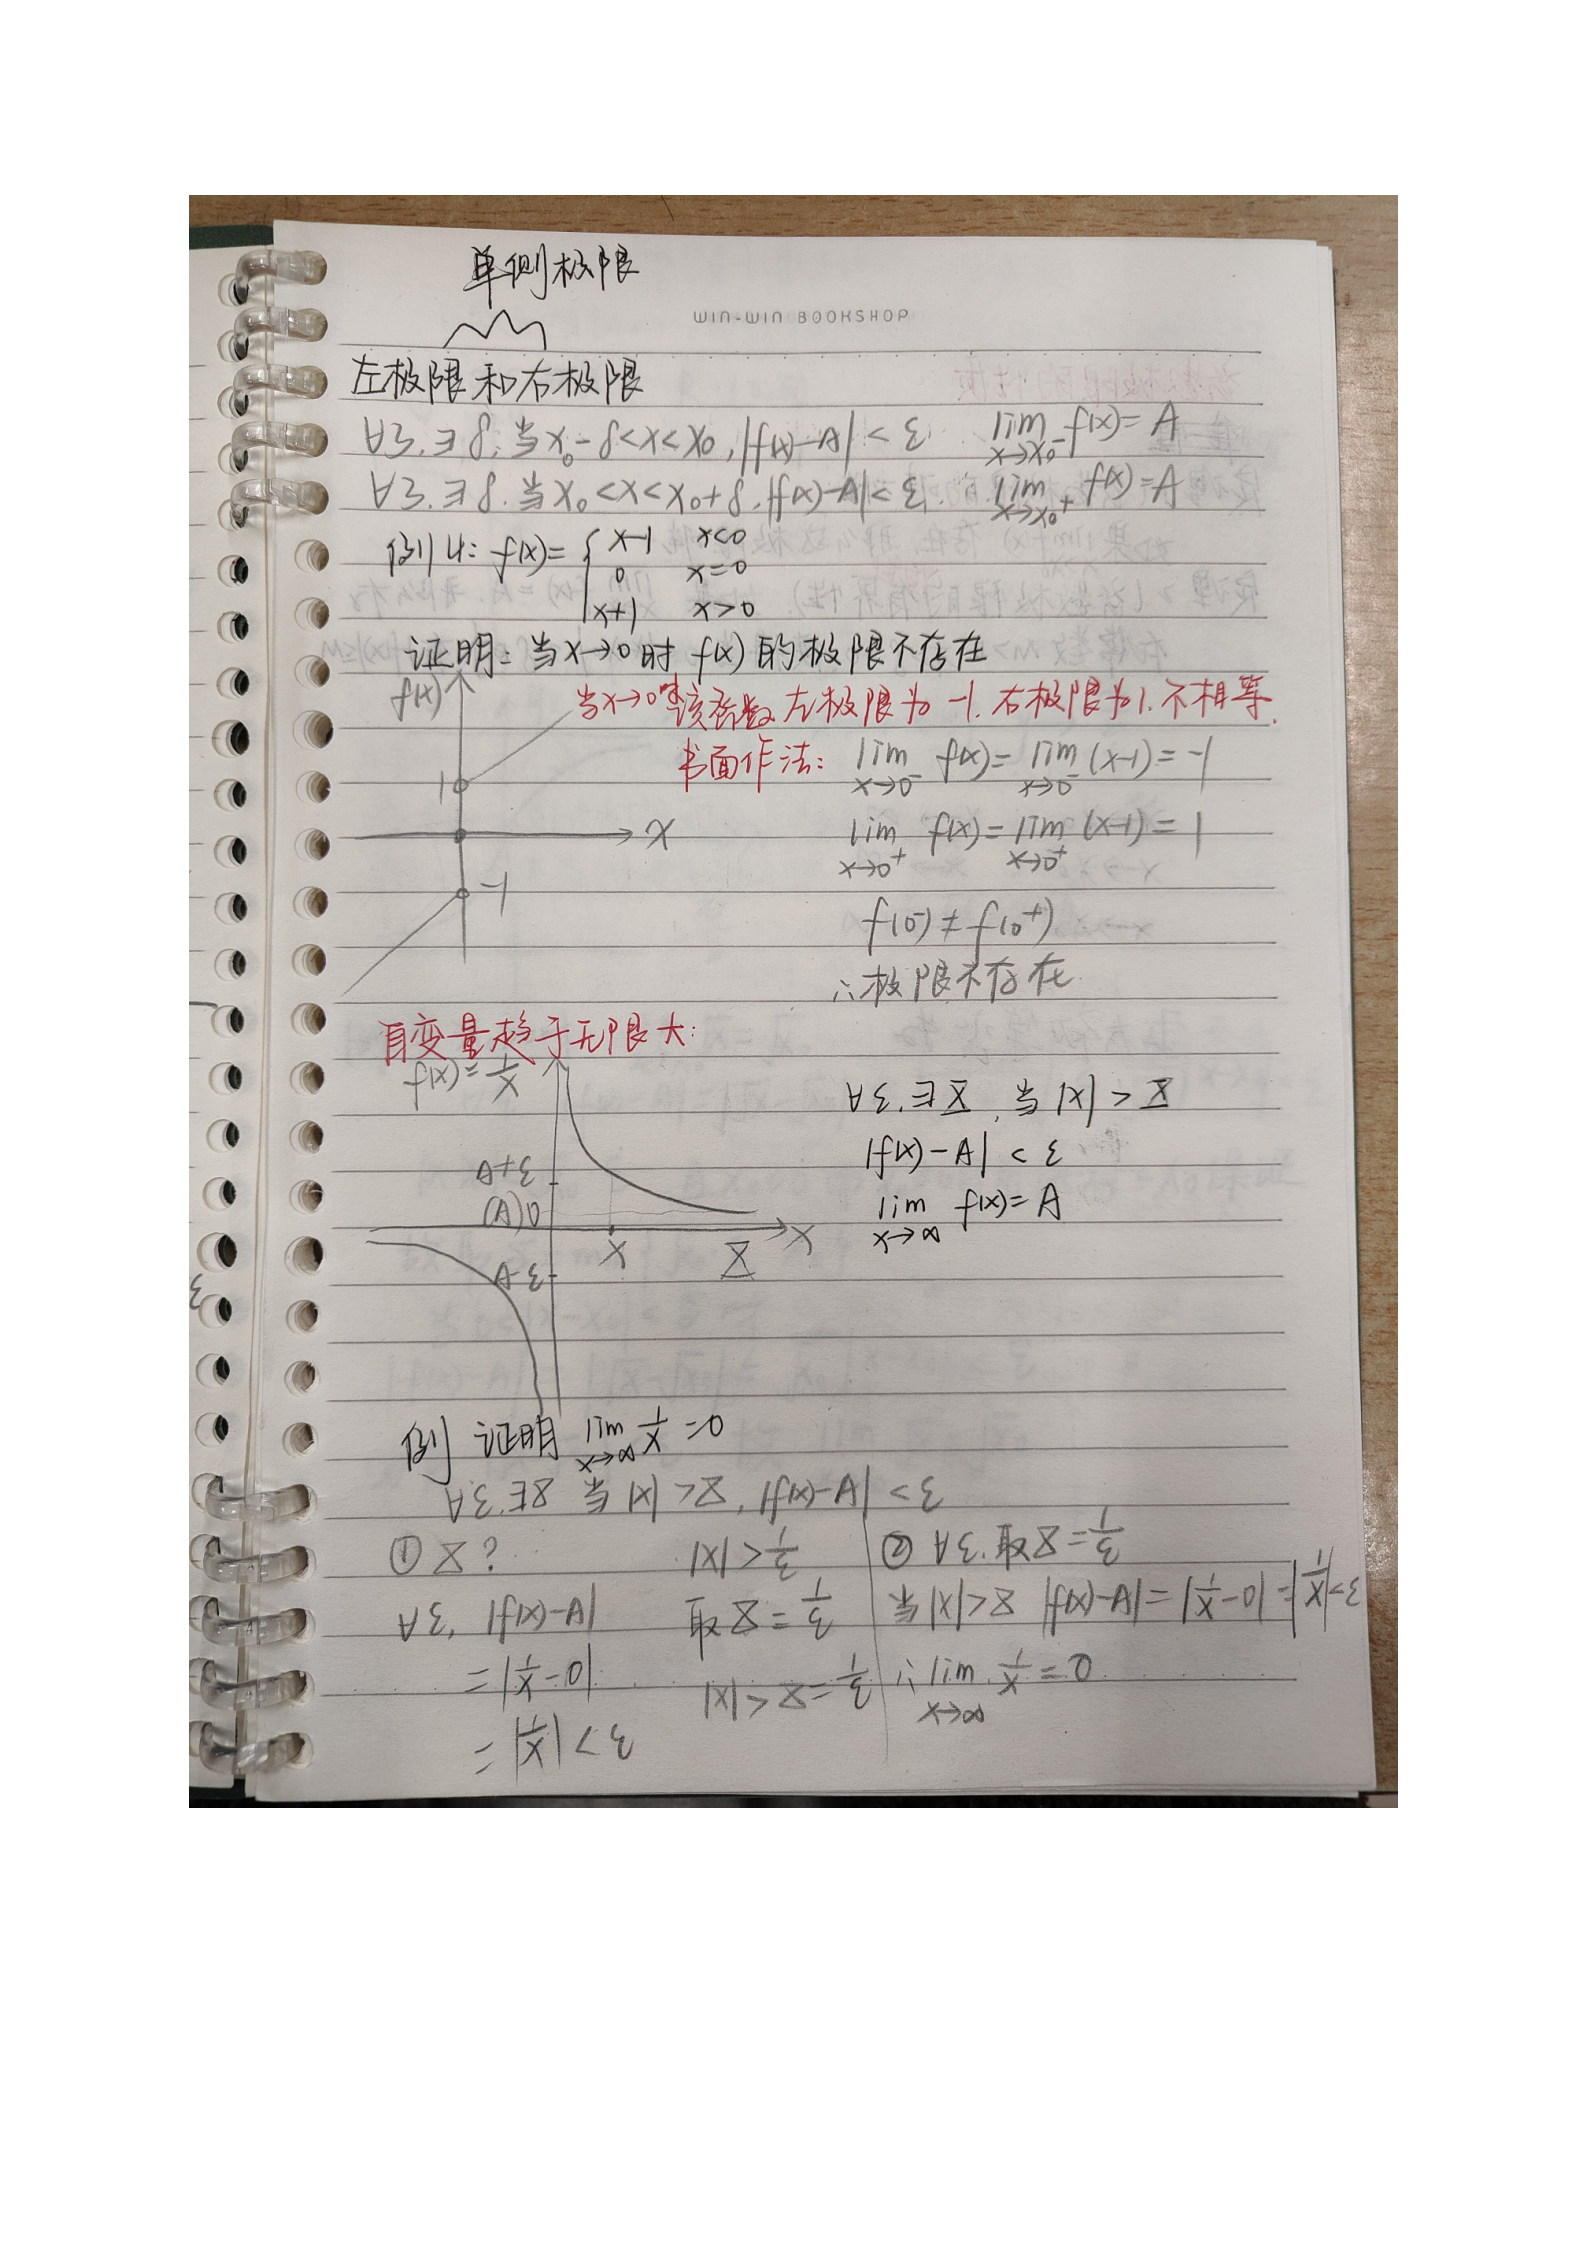 单侧极限
WIN-WIN BOOKSHOP
左极限和右极限
∀ε,∃δ,当x₀-δ<x<x₀,|f(x)-A|<ε lim x→x₀⁻ f(x)=A
∀ε,∃δ,当x₀<x<x₀+δ,|f(x)-A|<ε. lim x→x₀⁺ f(x)=A
例4: f(x)= { x-1 x<0
0 x=0
x+1 x>0
证明:当x→0时f(x)的极限不存在
f(x)
当x→0时该函数左极限为-1.右极限为1.不相等.
书面作法: lim x→0⁻ f(x)= lim x→0⁻ (x-1)=-1
1
x
lim x→0⁺ f(x)= lim x→0⁺ (x-1)=1
-1
f(0⁻)≠f(0⁺)
∴极限不存在.
自变量趋于无限大:
f(x)=1/x
∀ε,∃X,当|x|>X
|f(x)-A|<ε
lim x→∞ f(x)=A
A+ε
(A)0
x
X
x
A-ε
例 证明 lim x→∞ 1/x=0
∀ε,∃X 当|x|>X,|f(x)-A|<ε
① X?
∀ε, |f(x)-A|
=|1/x-0|
=|1/x|<ε
|x|>1/ε
取X=1/ε
|x|>X=1/ε
② ∀ε.取X=1/ε
当|x|>X |f(x)-A|=|1/x-0|=|1/x|<ε
∴lim x→∞ 1/x=0